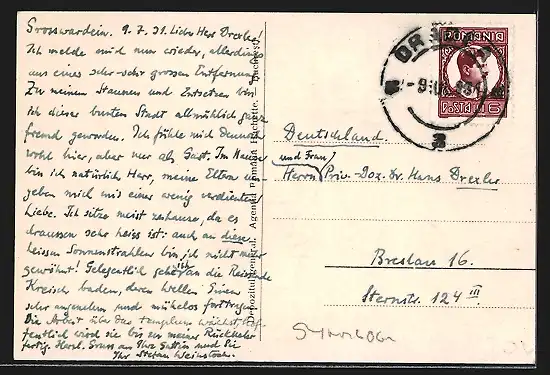 Grosswardein. 9.7.31. Lieber Herr Drexler!
Ich melde mich nun wieder, allerdings
aus einer sehr-sehr grossen Entfernung.
Zu meinem Staunen und Entsetzen bin
ich dieser bunten Stadt allmählich ganz
fremd geworden. Ich fühle mich dennoch
wohl hier, aber nur als Gast. Im Hause
bin ich natürlich Herr, meine Eltern um-
geben mich mit einer wenig verdienten
Liebe. Ich sitze meist zuhause, da es
draussen sehr heiss ist: auch an diese
heissen Sonnenstrahlen bin ich nicht mehr
gewöhnt! Gelegentlich geh ich an die Reissende
Kreisch baden, deren Wellen Einen
sehr angenehm und mühelos forttragen.
Die Arbeit über das templum wächst, hof-
fentlich wird sie bis zur meiner Rückkehr
fertig. Herzl. Gruss an Ihre Gattin und Sie
Ihr Stefan Weinstock.
Depozitul general, Agenția Română Hachette, București
ROMANIA
POSTA
6
ORADEA
3
Deutschland
und Frau
Herrn Priv.-Doz. Dr. Hans Drexler
Breslau 16.
Sternstr. 124 III